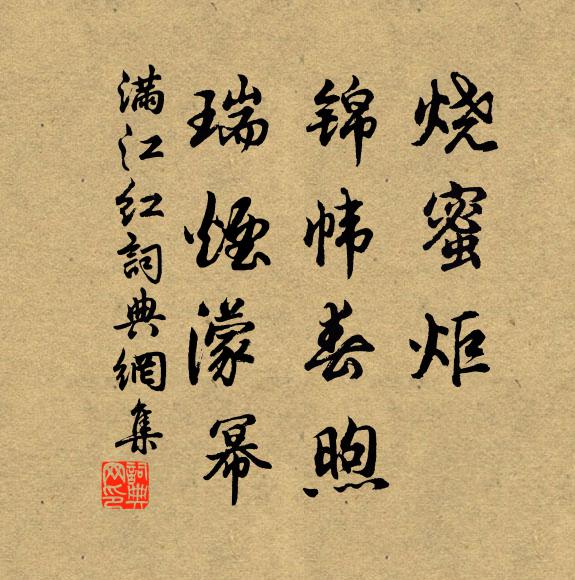 烧蜜炬
锦帏春煦
瑞煙濛幂
满江红詞典網集
詞典
网印